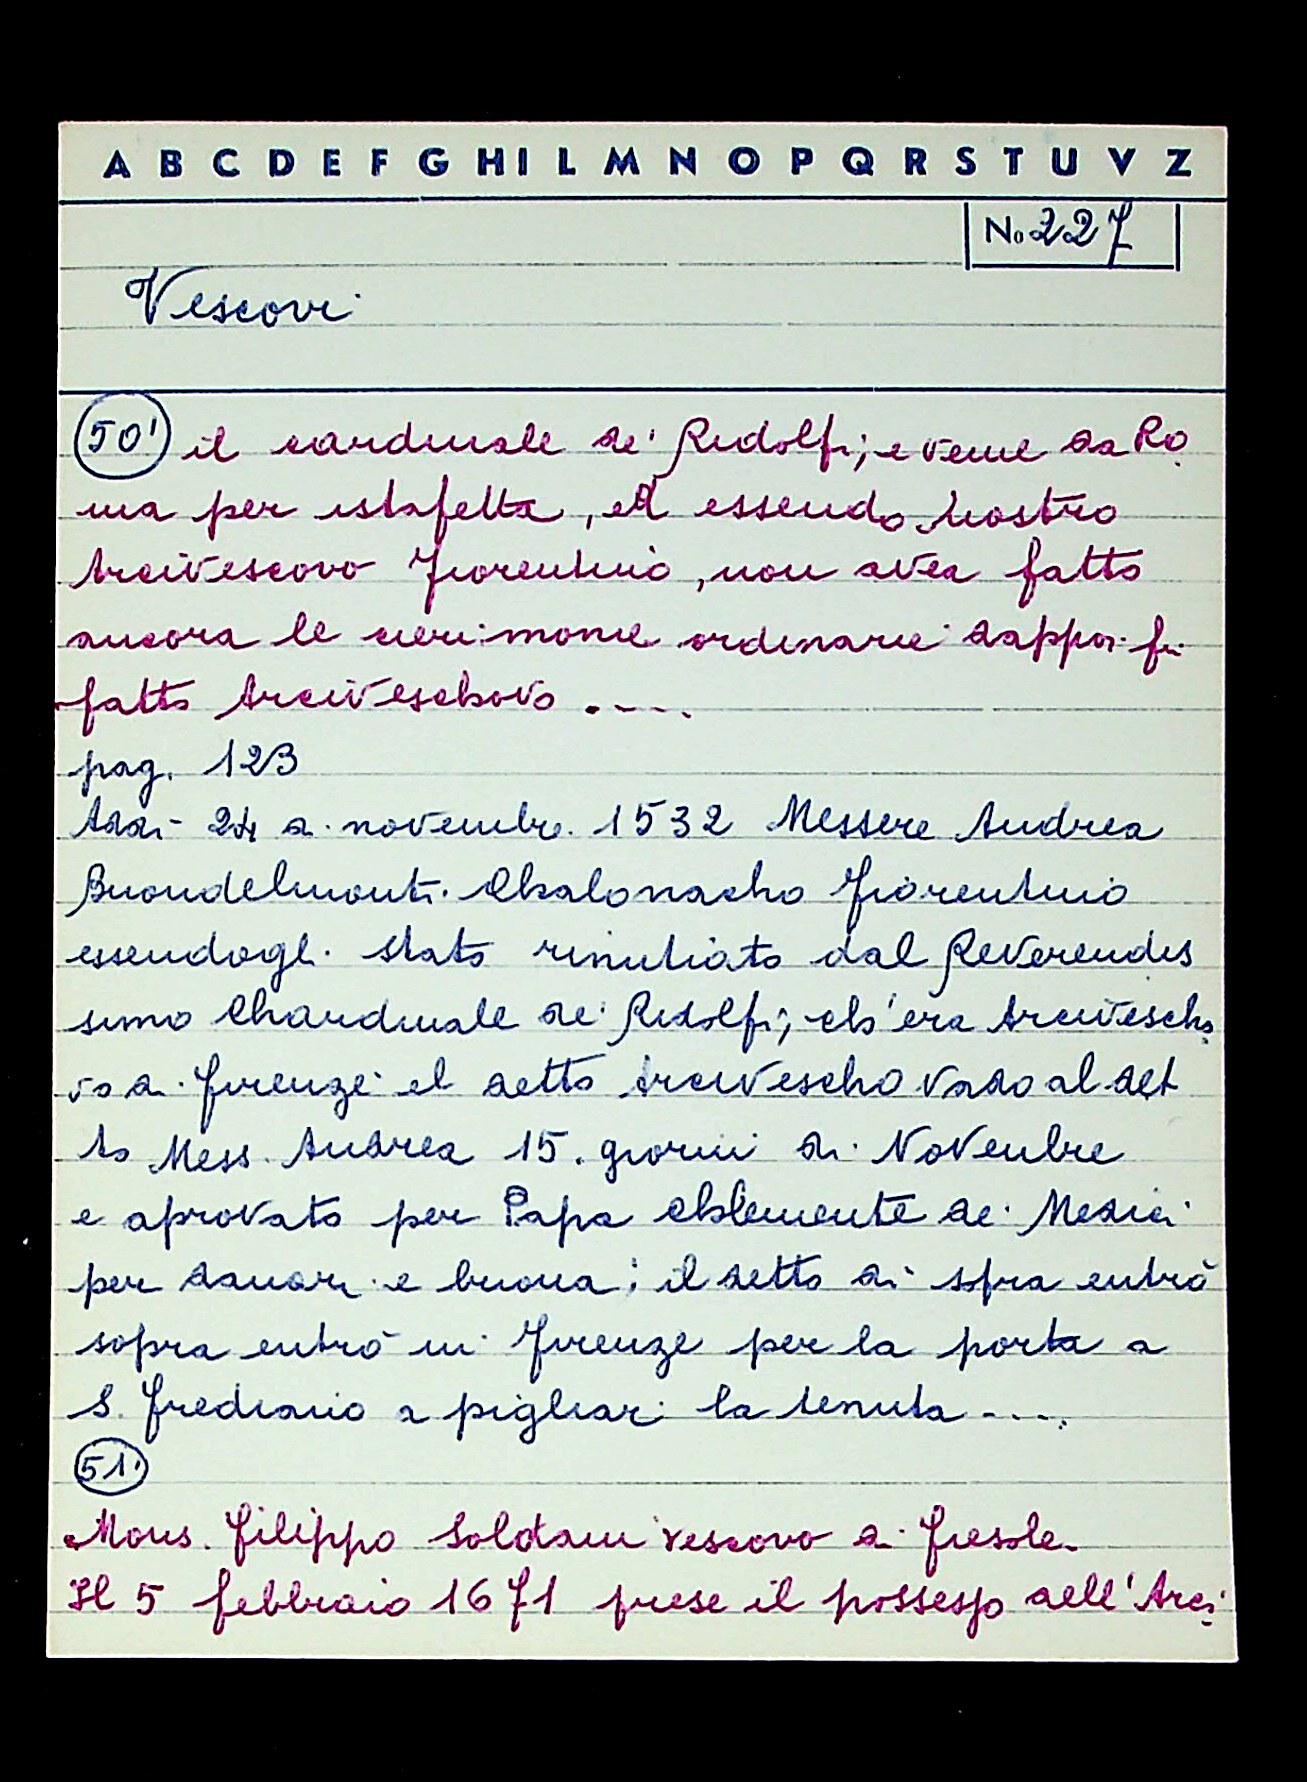 A B C D E F G H I L M N O P Q R S T U V Z
No 227
Vescovi
50' il cardinale de' Ridolfi; e venne da Ro
ma per istafetta, ed essendo nostro
Arcivescovo Fiorentino, non avea fatto
ancora le cierimonie ordinarie dappoi fu
fatto Arciveschovo . - - - .
pag. 123
Addi- 24 di novembre 1532 Messere Andrea
Buondelmonti Chalonacho Fiorentino
essendogli stato rinutiato dal Reverendis
simo Chardinale de' Ridolfi; ch'era Arcivescho
vo di Firenze el detto Arcivescho vado al det
to Mess. Andrea 15. giorni di Novenbre
e aprovato per Papa Chlemente de Medici
per danari e buona; il detto di sopra entrò
sopra entrò in Firenze per la porta a
S. Frediano a pigliar la tenuta - - - .
51'
Mons. Filippo Soldani vescovo di Fiesole.
Il 5 febbraio 1671 prese il possesso dell'Arci